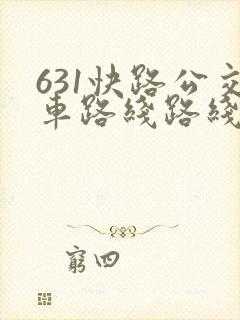 631快路公交
車路綫路綫
窮四